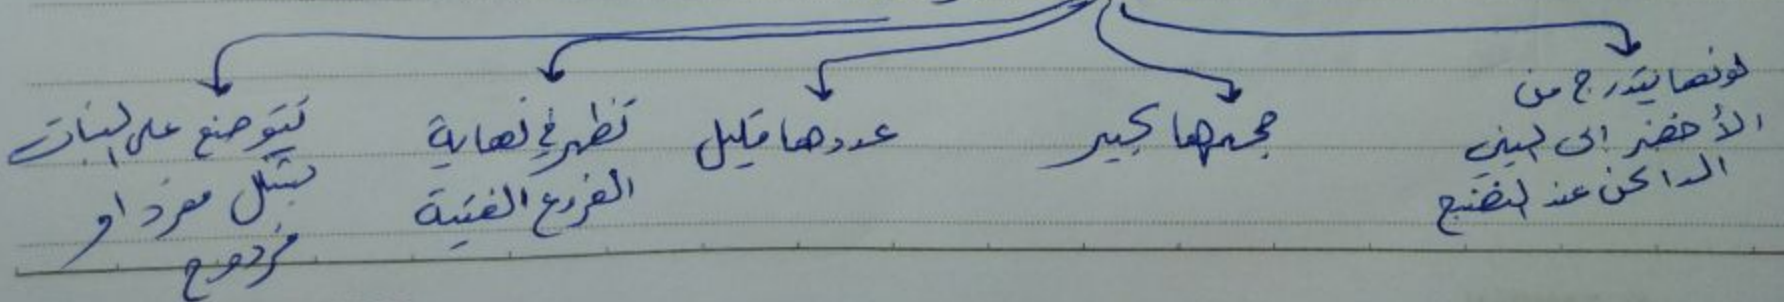 لونها يتدرج من
الأخضر إلى البني
الداكن عند النضج
حجمها كبير
عددها قليل
تظهر في نهاية
الفروع الفتية
تتوضع على النبات
بشكل مفرد او
مزدوج